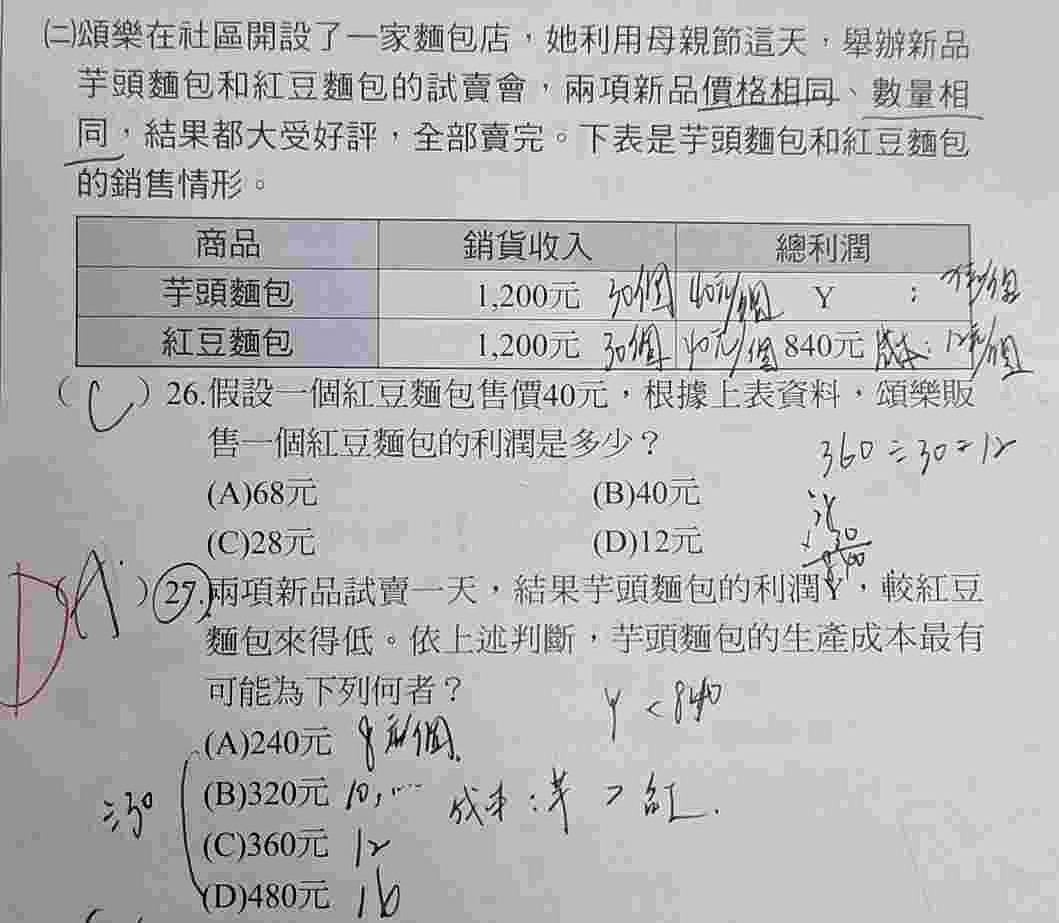 ㈡頌樂在社區開設了一家麵包店，她利用母親節這天，舉辦新品
芋頭麵包和紅豆麵包的試賣會，兩項新品價格相同、數量相
同，結果都大受好評，全部賣完。下表是芋頭麵包和紅豆麵包
的銷售情形。
商品 銷貨收入 總利潤
芋頭麵包 1,200元 30個 40元/個 Y :
紅豆麵包 1,200元 30個 40元/個 840元 成本: 12元/個
( C ) 26.假設一個紅豆麵包售價40元，根據上表資料，頌樂販
售一個紅豆麵包的利潤是多少？
360÷30=12
(A)68元 (B)40元
(C)28元 (D)12元
D (A) 27.兩項新品試賣一天，結果芋頭麵包的利潤Y，較紅豆
麵包來得低。依上述判斷，芋頭麵包的生產成本最有
可能為下列何者？
Y < 840
(A)240元 8元/個
(B)320元 10,...... 成本:芋 > 紅.
÷30
(C)360元 12
(D)480元 16